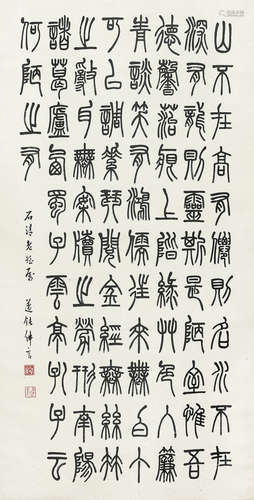 山不在高有僊則名水不在
深有龍則靈斯是陋室惟吾
德馨苔痕上階綠艸色入簾
青談笑有鴻儒往來無白丁
可以調素琴閱金經無絲竹
之亂耳無案牘之勞形南陽
諸葛廬西蜀子雲亭孔子云
何陋之有
石 老 屬 邁鈍佛言